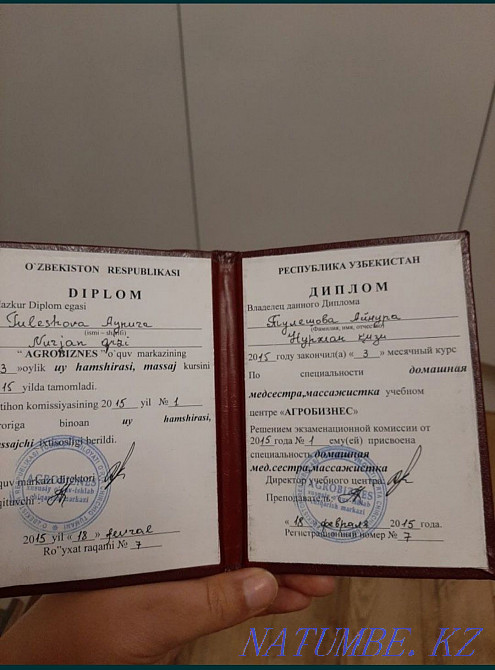 O`ZBEKISTON RESPUBLIKASI
DIPLOM
azkur Diplom egasi
Tuleshova Aynura
(ismi – sharifi)
Nurjan qizi
“ AGROBIZNES ”o`quv markazining
3 »oylik uy hamshirasi, massaj kursini
15 yilda tamomladi.
tihon komissiyasining 2015 yil № 1
roriga binoan uy hamshirasi,
ssajchi ixtisosligi berildi.
quv markazi direktori
qituvchi :
2015 yil « 18 » fevral
Ro"yxat raqami № 7
РЕСПУБЛИКА УЗБЕКИСТАН
ДИПЛОМ
Владелец данного Диплома
Тулешова Айнура
(Фамилия, имя, отчество)
Нуржан қизи
2015 году закончил(а) « 3 » месячный курс
По специальности домашная
медсестра,массажистка учебном
центре «АГРОБИЗНЕС»
Решением экзаменационной комиссии от
2015 года № 1 ему(ей) присвоена
специальность домашная
мед.сестра,массажистка
Директор учебного центра
Преподаватель
« 18 » февраля 2015 года.
Регистрационный номер № 7
AGROBIZNES
AGROBIZNES
NATUMBE. KZ